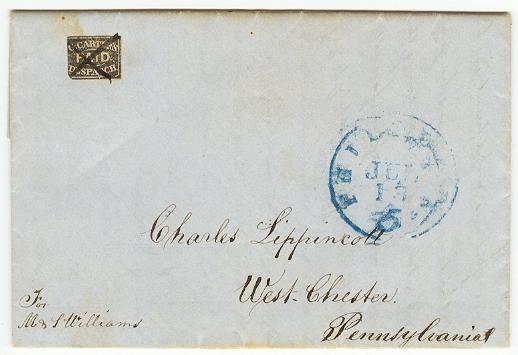 G. CARTER'S
PAID
DISPATCH
PHILA
JUL
15
5
Charles Lippincott
West-Chester.
Pennsylvania
For
M & S Williams